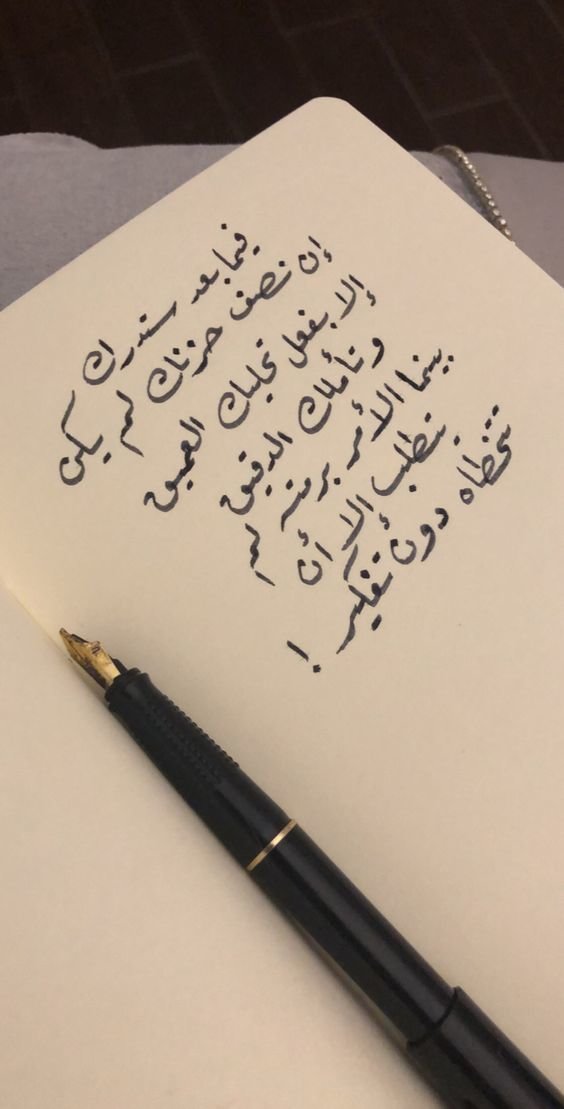 فيما بعد ستدرك
إن نصف حزنك لم يكن
إلا بفعل تحليلك العميق
وتأملك الدقيق
بينما الأمر برمته لم
يتطلب إلا أن
تتخطاه دون تفكير !